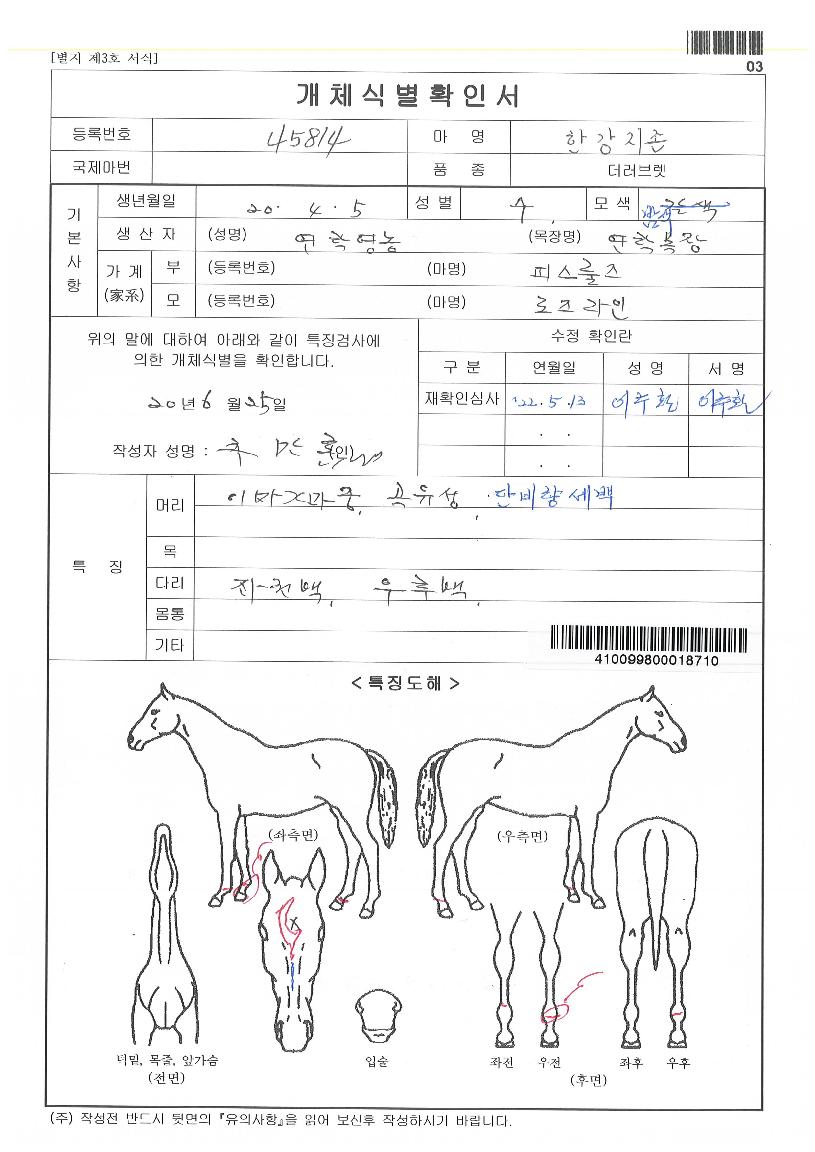 [별지 제3호 서식]
03
개체식별확인서
등록번호 45814 마 명 한강지존
국제마번 품 종 더러브렛
기본사항
생년월일 20. 4. 5 성별 수 모색
생산자 (성명) 연학영농 (목장명) 연학목장
가계(家系) 부 (등록번호) (마명) 피스룰즈
모 (등록번호) (마명) 로즈라인
위의 말에 대하여 아래와 같이 특징검사에
의한 개체식별을 확인합니다.
20년 6월 25일
작성자 성명 : (인)
수정 확인란
구분 연월일 성명 서명
재확인심사 '22. 5. 13 이주환 이주환
. .
. .
특징
머리 곡유성, 단비량세백
목
다리 우후백
몸통
기타
410099800018710
< 특징도해 >
(좌측면) (우측면)
턱밑, 목줄, 앞가슴
(전면)
입술
좌전 우전 좌후 우후
(후면)
(주) 작성전 반드시 뒷면의 『유의사항』을 읽어 보신후 작성하시기 바랍니다.